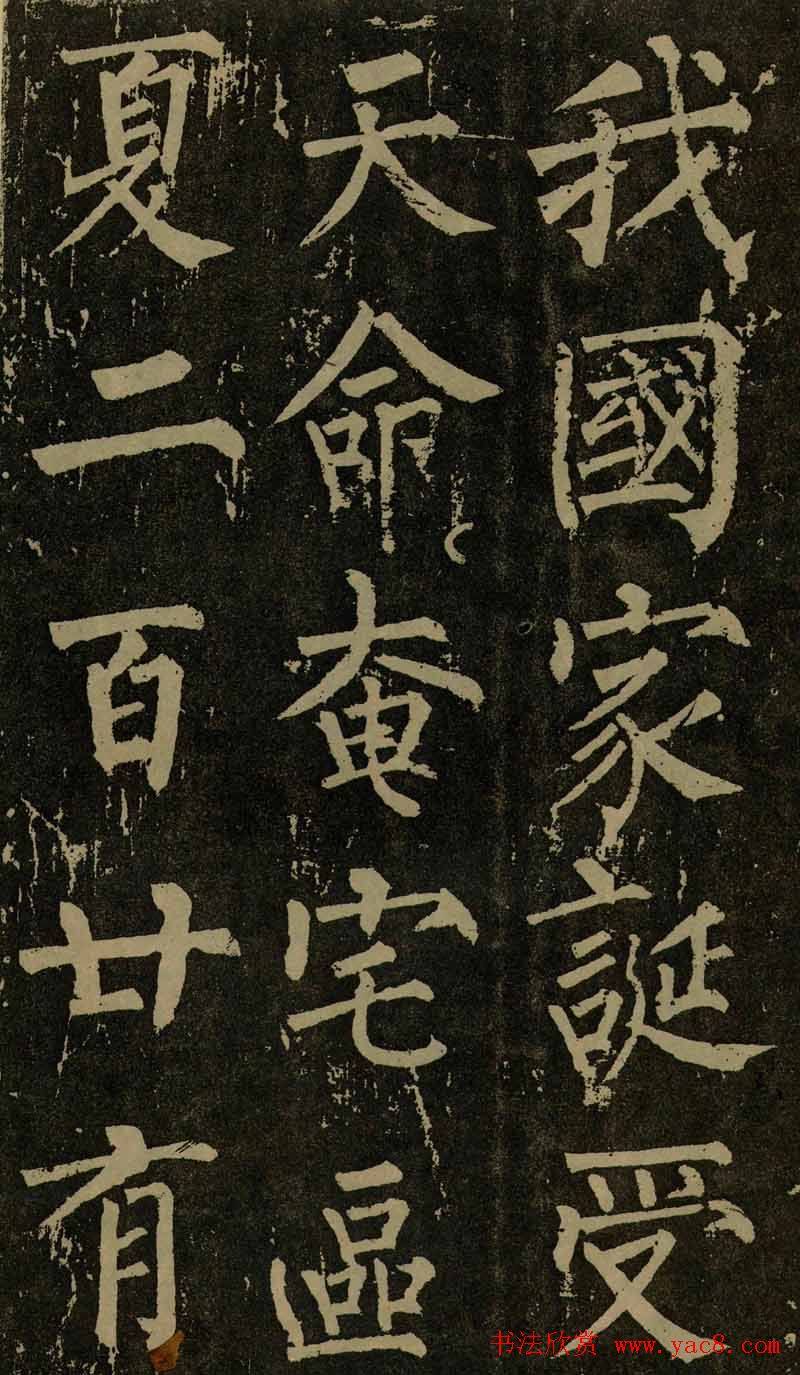 我國家誕受
天命奄宅區
夏二百廿有
书法欣赏 www.yac8.com